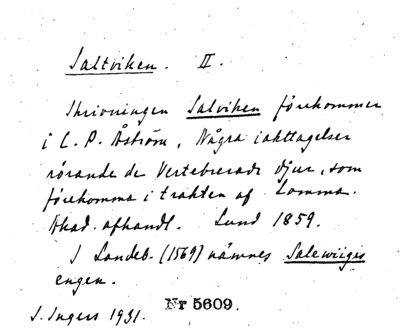 Saltviken. II.
Skrivningen Salviken förekommer
i C. P. Åström, Några iakttagelser
rörande de Vertebrerade djur, som
förekomma i trakten af Lomma.
Akad. afhandl. Lund 1859.
I Landeb. (1569) nämnes Salewiigis
engen.
I. Ingers 1931. Nr 5609.